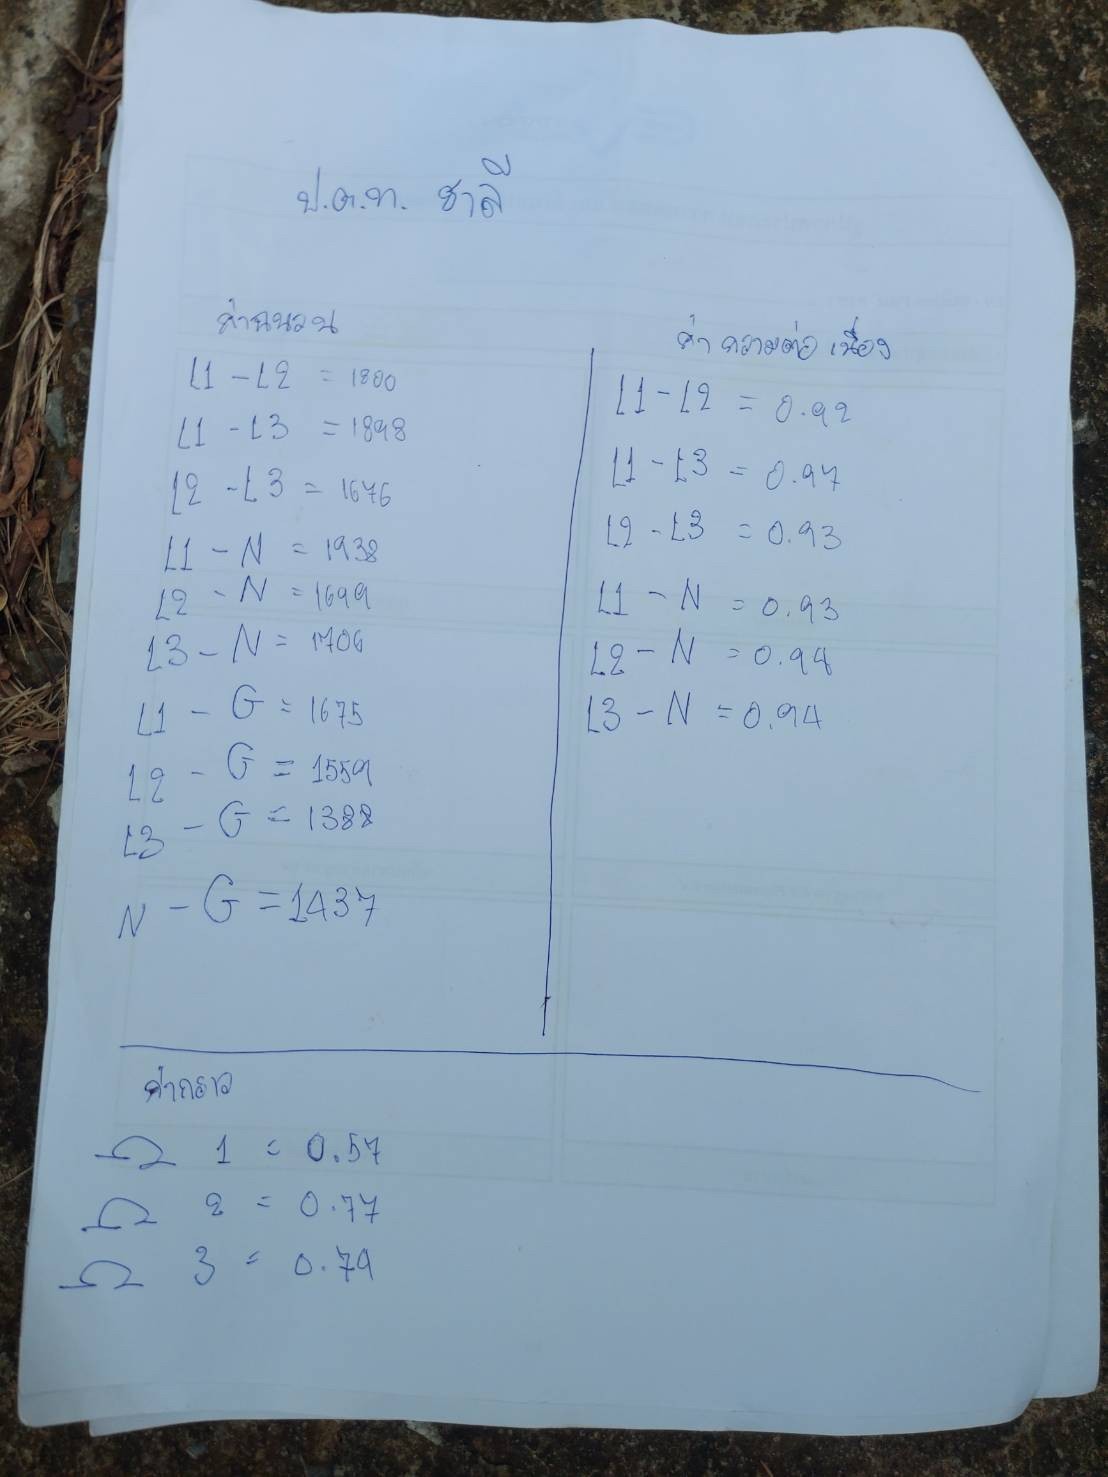 ป.ต.ท. ชาลี
ค่าฉนวน
L1 - L2 = 1800
L1 - L3 = 1898
L2 - L3 = 1676
L1 - N = 1938
L2 - N = 1699
L3 - N = 1706
L1 - G = 1675
L2 - G = 1559
L3 - G = 1388
N - G = 1437
ค่า ความต่อ เนื่อง
L1 - L2 = 0.92
L1 - L3 = 0.97
L2 - L3 = 0.93
L1 - N = 0.93
L2 - N = 0.94
L3 - N = 0.94
ค่ากราว
Ω 1 = 0.57
Ω 2 = 0.77
Ω 3 = 0.79